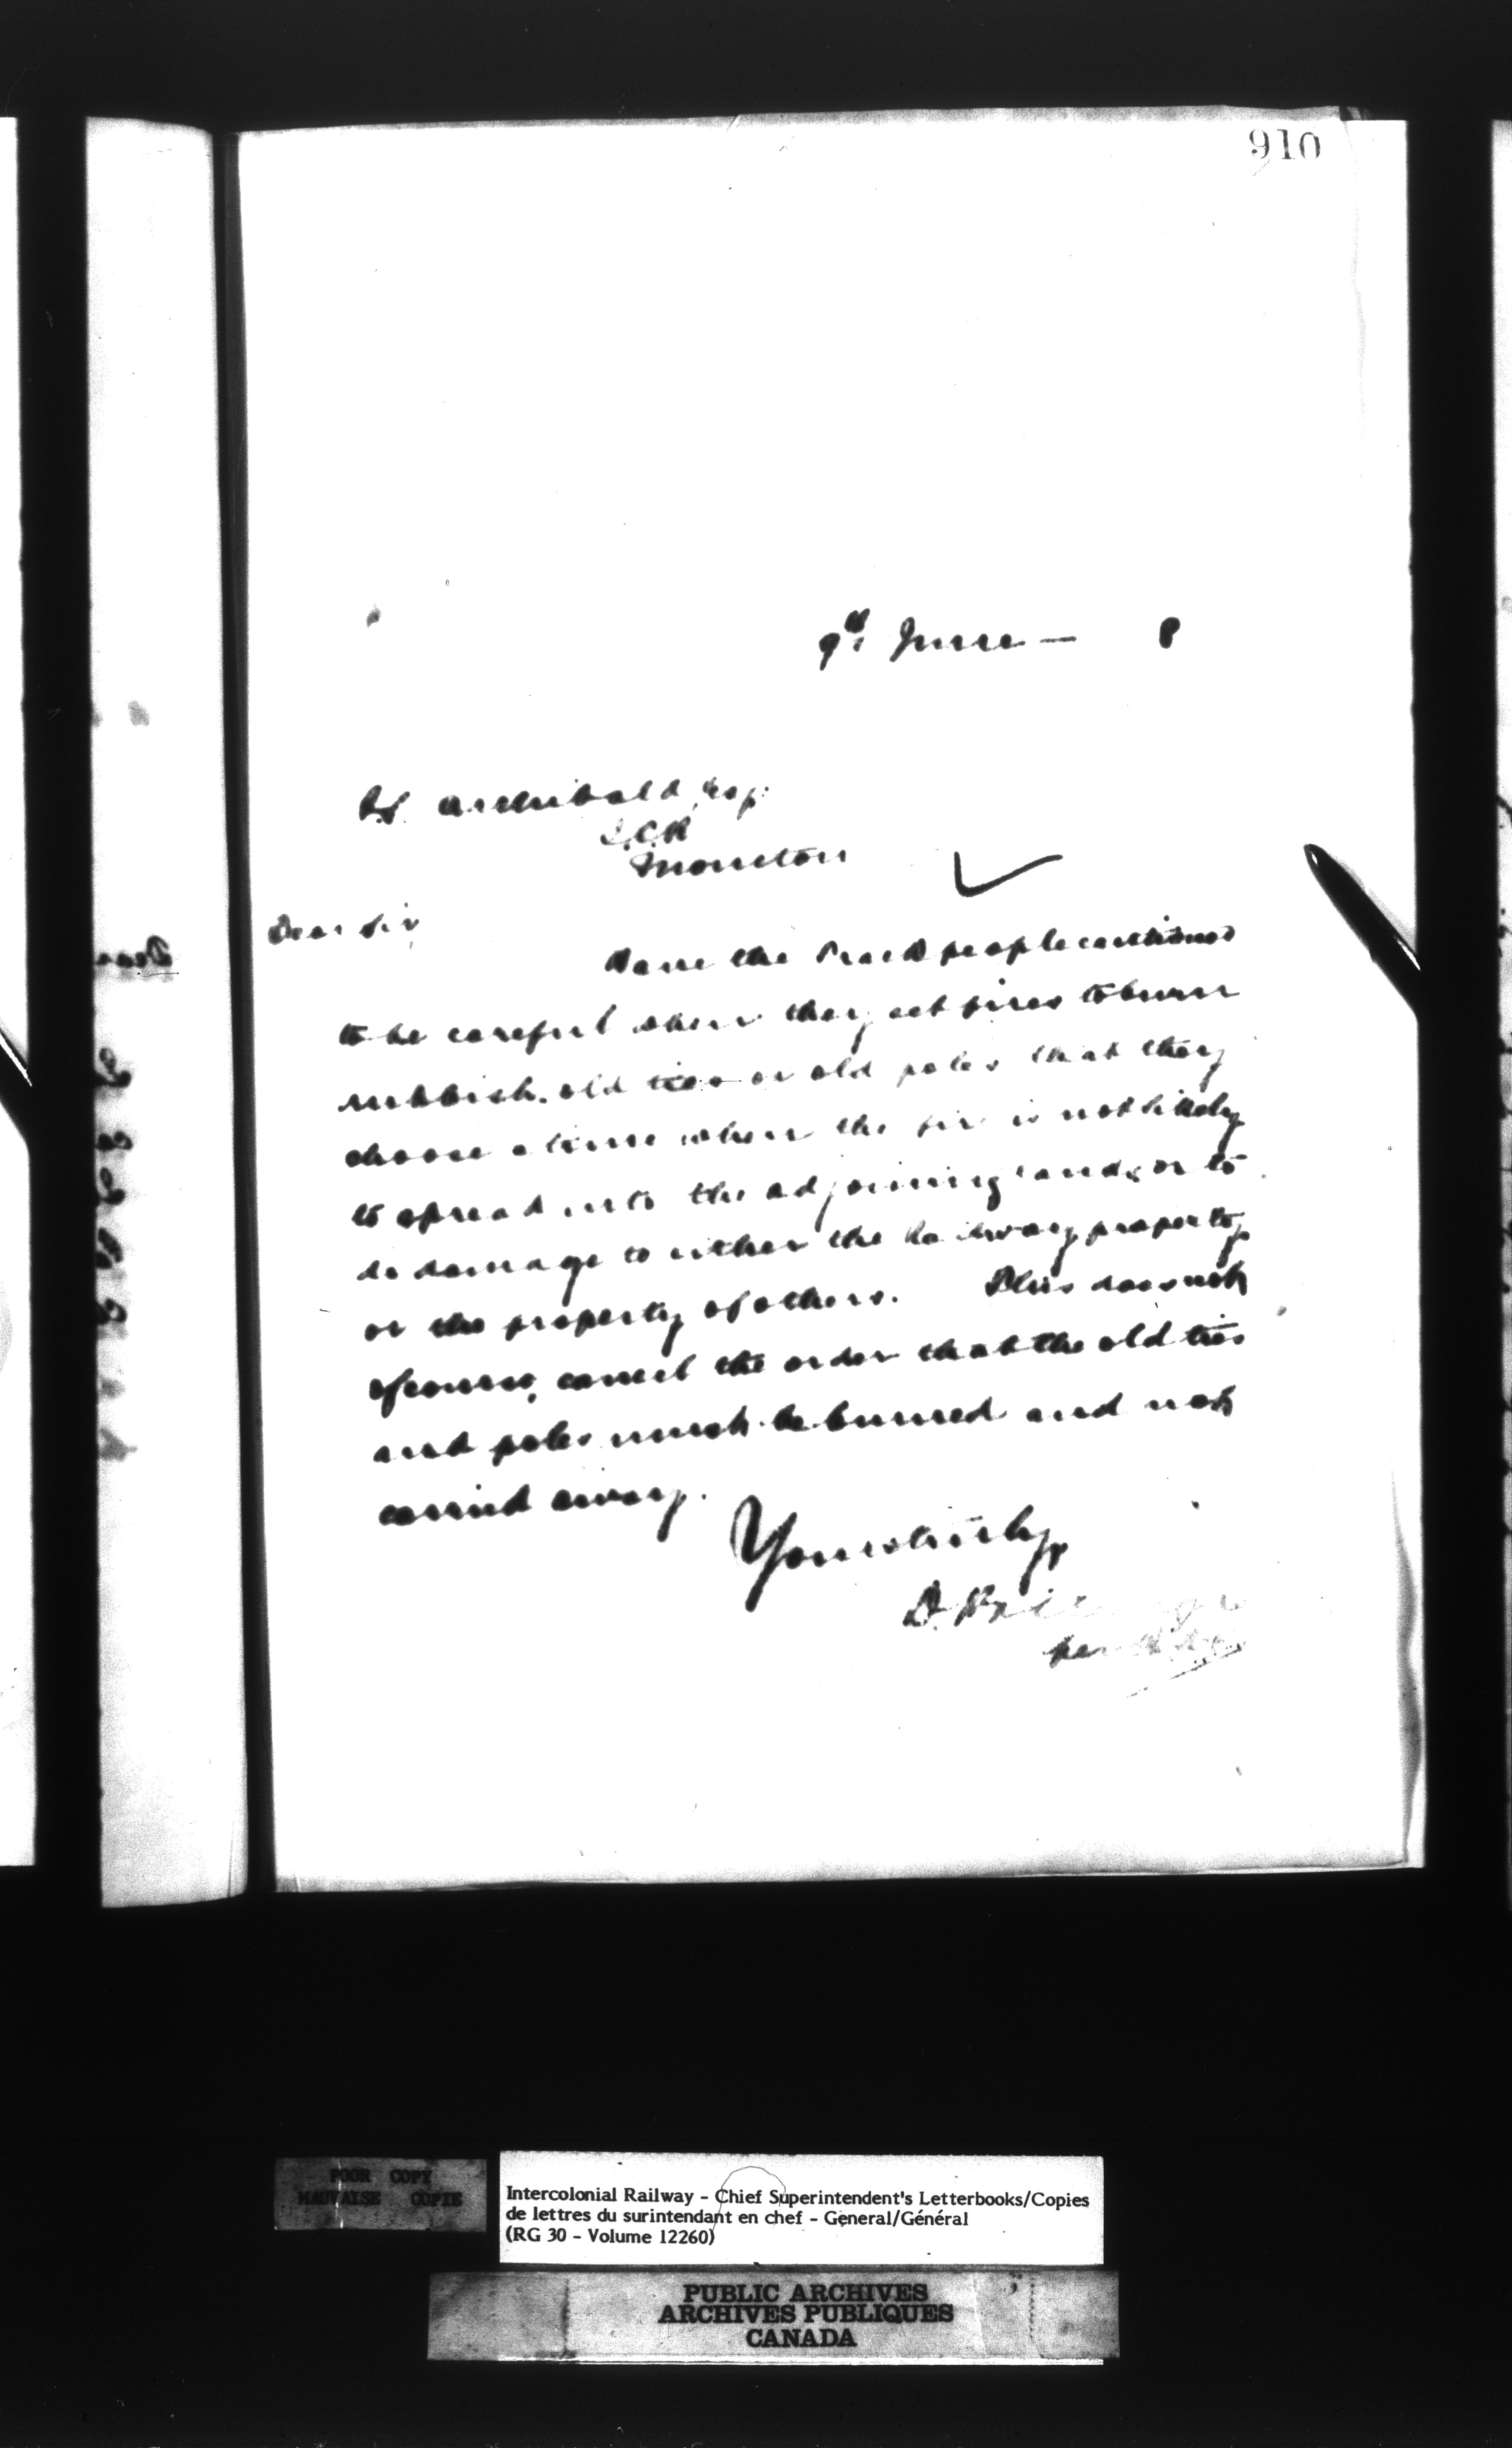 910
9th June — 8
P.S. Archibald Esq.
I.C.R
Moncton
Dear Sir
Have the Track people cautioned
to be careful when they set fires to burn
rubbish, old ties or old poles that they
choose a time when the fire is not likely
to spread into the adjoining lands or to
do damage to either the Railway property
or the property of others. This does not
of course, cancel the order that the old ties
and poles must be burned and not
carried away.
Yours truly,
D.
per
Dear
POOR COPY
MAUVAISE COPIE
Intercolonial Railway - Chief Superintendent's Letterbooks/Copies
de lettres du surintendant en chef - General/Général
(RG 30 - Volume 12260)
PUBLIC ARCHIVES
ARCHIVES PUBLIQUES
CANADA